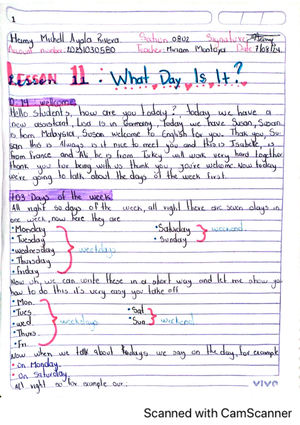 1
Heimy Michell Ayala Rivera Section 0802 Signature:
Account number: 20231030580 Teacher: Miriam Montoya Date 7/08/24
LESSON 11: What Day Is It?
0:14 welcome
Hello student's, how are you today?, Today we have a
new assistant, Lea is in Germany, Today we have Susan, Susan
is from Malaysia, Susan welcome to English for you. Thank you, Su-
san this is Always is it nice to meet you, and this is Isabelle, is
from France and Ali he is from Turkey will work very hard together
thank you for being with us thank you, you're welcome. Now today
we're going to talk about the days of the week first.
1:03 Days of the week
All right so days of the week, all right there are seven days in
one week, now here they are
• Monday • Saturday
• Tuesday • Sunday weekend.
• wednesday weekdays
• Thursday
• friday
Now uh, we can write these in a short way and let me show you
how to do this it's very easy you take off
• Mon.
• Tues. • Sat
• wed. weekdays • Sun weekend
• Thurs.
• Fri.
Now when we talk about todays we say on the day, for example
• on Monday.
• on Saturday.
All right so for example our:
vivo
Scanned with CamScanner